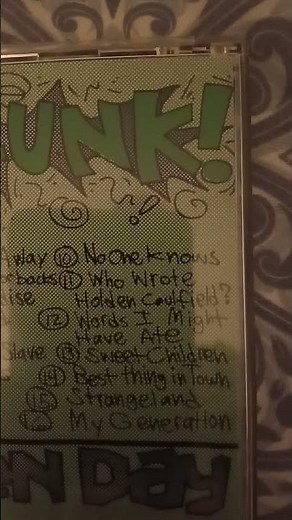 UNK!
!
Away ⑩ No One Knows
⑪ Who Wrote
Holden Caulfield?
⑫ Words I Might
Have Ate
Slave ⑬ Sweet Children
⑭ Best thing in Town
⑮ Strangeland
⑯ My Generation
EN DAY